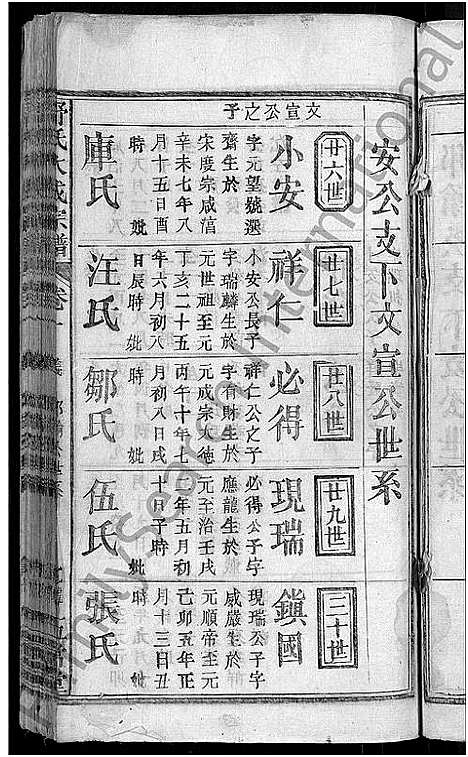 安公支下文宣公世系
文宣公之子
廿六世
小安
字元望號選
齋生於
宋度宗咸淳
辛未七年八
月十五日酉
時 妣
庫氏
廿七世
祥仁
小安公長子
字瑞麟生於
元世祖至元
丁亥二十五
年六月初八
日辰時 妣
汪氏
廿八世
必得
祥仁公之子
字有財生於
元成宗大德
丙午十年七
月初八日戌
時 妣
鄒氏
廿九世
現瑞
必得公子字
應龍生於
元至治壬戌
二年五月初
十日子時
妣
伍氏
三十世
鎮國
現瑞公子字
威嚴生於
元順帝至元
己卯五年正
月十三日丑
時 妣
張氏
舒氏大成宗譜
卷十
FamilySearch International